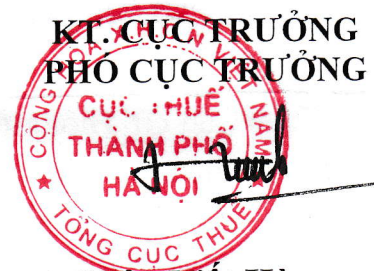 KT. CỤC TRƯỞNG
PHÓ CỤC TRƯỞNG
CỘNG HÒA VIỆT NAM
CỤC THUẾ
THÀNH PHỐ
HÀ NỘI
TỔNG CỤC THUẾ